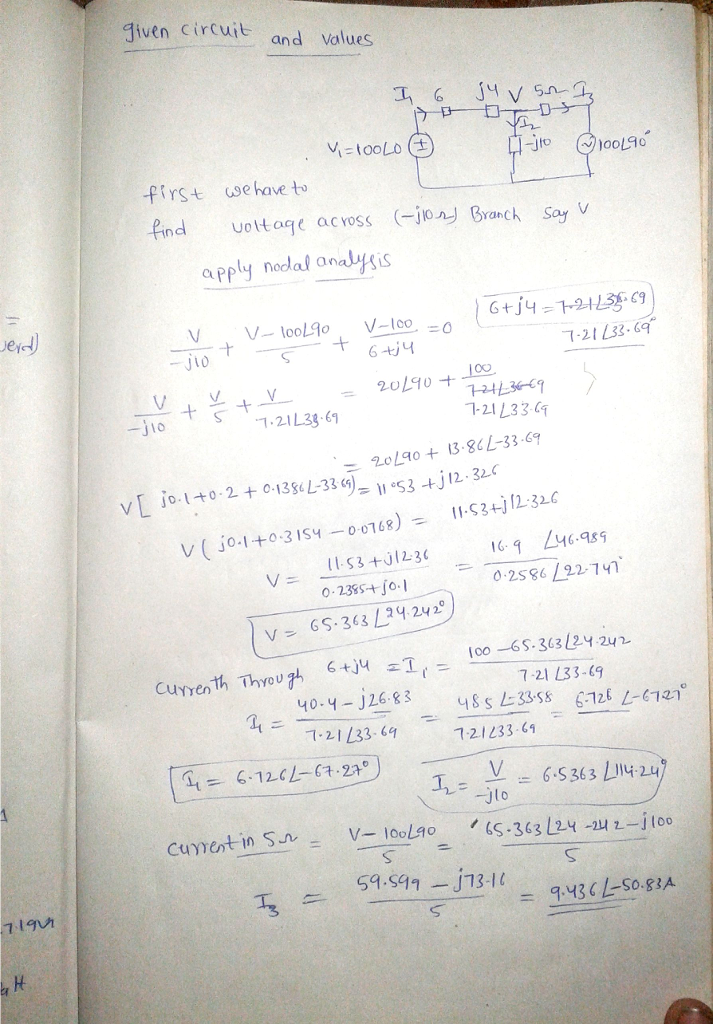 given circuit and values
I1 6 j4 V 5Ω I3
I2
V1=100∠0 -j10 100∠90°
first we have to
find voltage across (-j10Ω) Branch say V
apply nodal analysis
V/-j10 + V-100∠90/5 + V-100/6+j4 = 0
6+j4 = 7.21∠33.69
7.21∠33.69°
V/-j10 + V/5 + V/7.21∠33.69 = 20∠90 + 100/7.21∠33.69
= 20∠90 + 13.86∠-33.69
V[j0.1+0.2+0.1386∠-33.69] = 11.53+j12.326
V(j0.1+0.3154-0.0768) = 11.53+j12.326
V = 11.53+j12.36/0.2385+j0.1 = 16.9∠46.989/0.2586∠22.747
V = 65.363∠24.242°
Currenth Through 6+j4 = I1 = 100-65.363∠24.242/7.21∠33.69
I1 = 40.4-j26.83/7.21∠33.69 = 48.5∠-33.58/7.21∠33.69 = 6.726∠-67.27°
I1 = 6.726∠-67.27° I2 = V/-j10 = 6.5363∠114.24°
Current in 5Ω = V-100∠90/5 = 65.363∠24.242-j100/5
I3 = 59.599-j73.16/5 = 9.436∠-50.83A
=
7.19
H